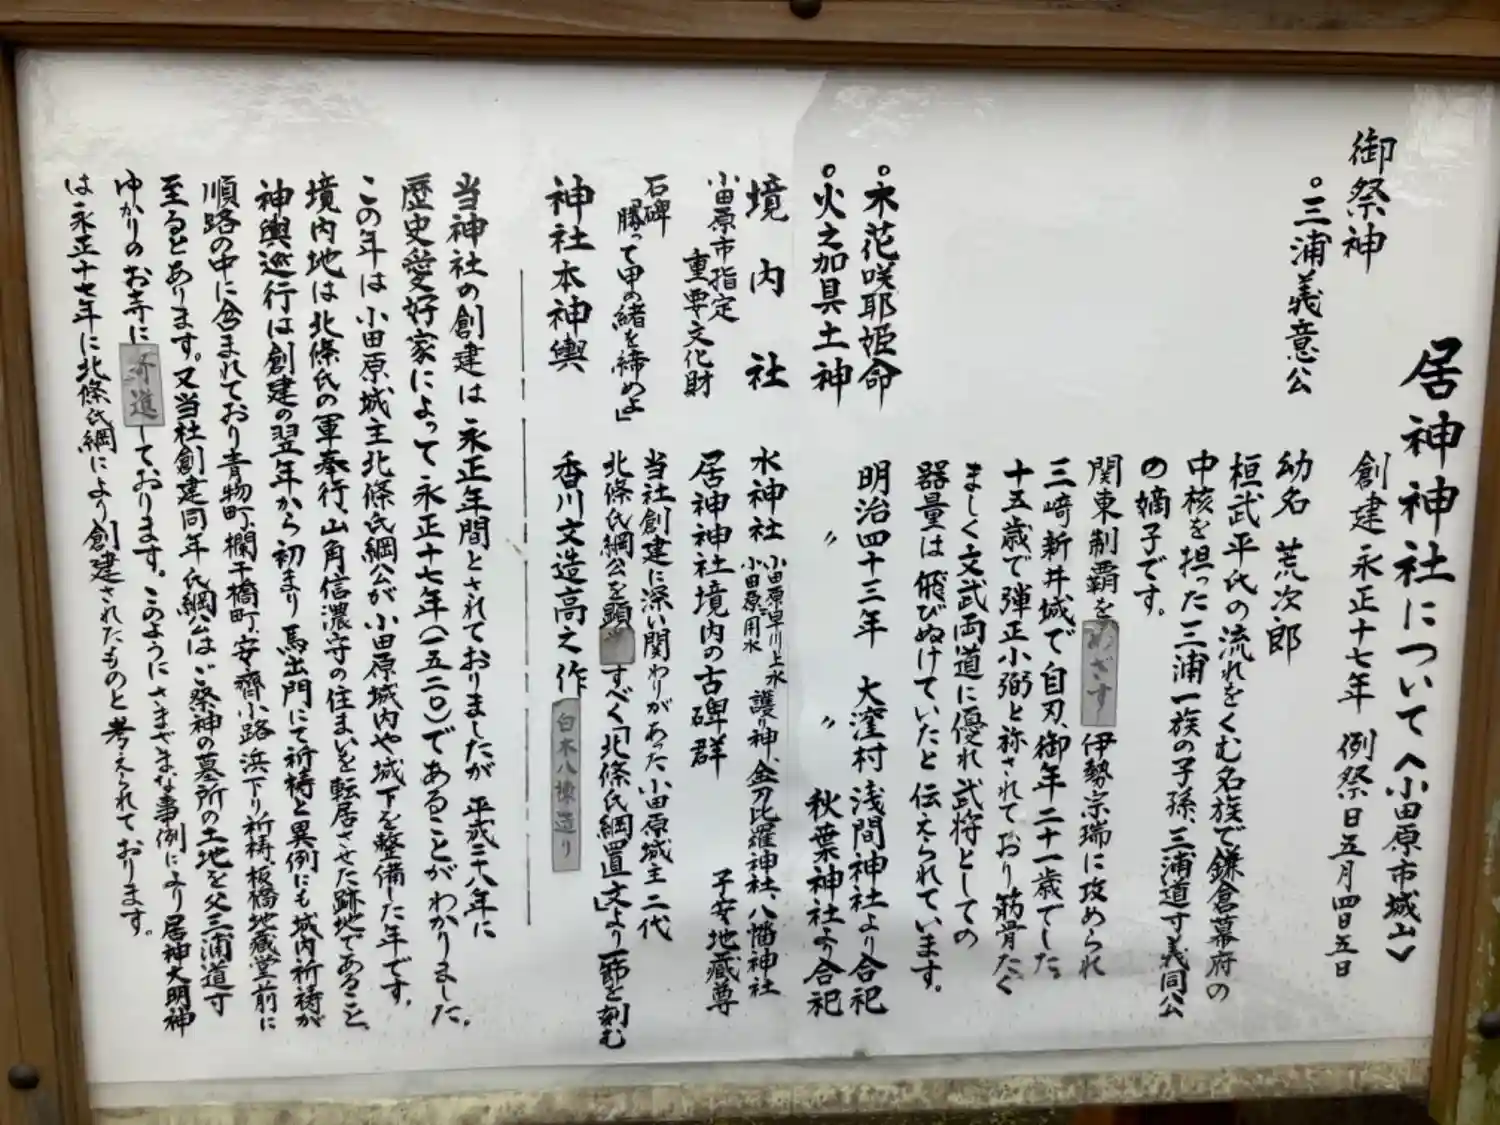 居神神社について〈小田原市城山〉
創建 永正十七年 例祭日五月四日五日
御祭神
。三浦義意公
幼名 荒次郎
桓武平氏の流れをくむ名族で鎌倉幕府の
中核を担った三浦一族の子孫、三浦道寸義同公
の嫡子です。
関東制覇をめざす伊勢宗瑞に攻められ
三﨑新井城で自刃、御年二十一歳でした。
十五歳で弾正小弼と称されており筋骨たく
ましく文武両道に優れ武将としての
器量は飛びぬけていたと伝えられています。
。木花咲耶姫命 明治四十三年 大窪村 浅間神社より合祀
。火之加具土神 〃 〃 秋葉神社より合祀
境内社 水神社 小田原早川上水 小田原用水 護り神、金刀比羅神社、八幡神社
子安地蔵尊
小田原市指定 重要文化財 居神神社境内の古碑群
石碑 「勝って甲の緒を締めよ」
当社創建に深い関わりがあった小田原城主二代
北條氏綱公を顕すべく「北條氏綱置文」より一節を刻む
神社本神輿 香川文造高之作 白木八棟造り
当神社の創建は永正年間とされておりましたが平成二十八年に
歴史愛好家によって永正十七年(一五二〇)であることがわかりました。
この年は小田原城主北條氏綱公が小田原城内や城下を整備した年です。
境内地は北條氏の軍奉行、山角信濃守の住まいを転居させた跡地であること、
神輿巡行は創建の翌年から初まり馬出門にて祈祷と異例にも城内祈祷が
順路の中に含まれており青物町、欄干橋町、安齊小路、浜下り祈祷、板橋地蔵堂前に
至るとあります。又当社創建同年氏綱公はご祭神の墓所の土地を父三浦道寸
ゆかりのお寺に寄進しております。このようにさまざまな事例により居神大明神
は永正十七年に北條氏綱により創建されたものと考えられております。